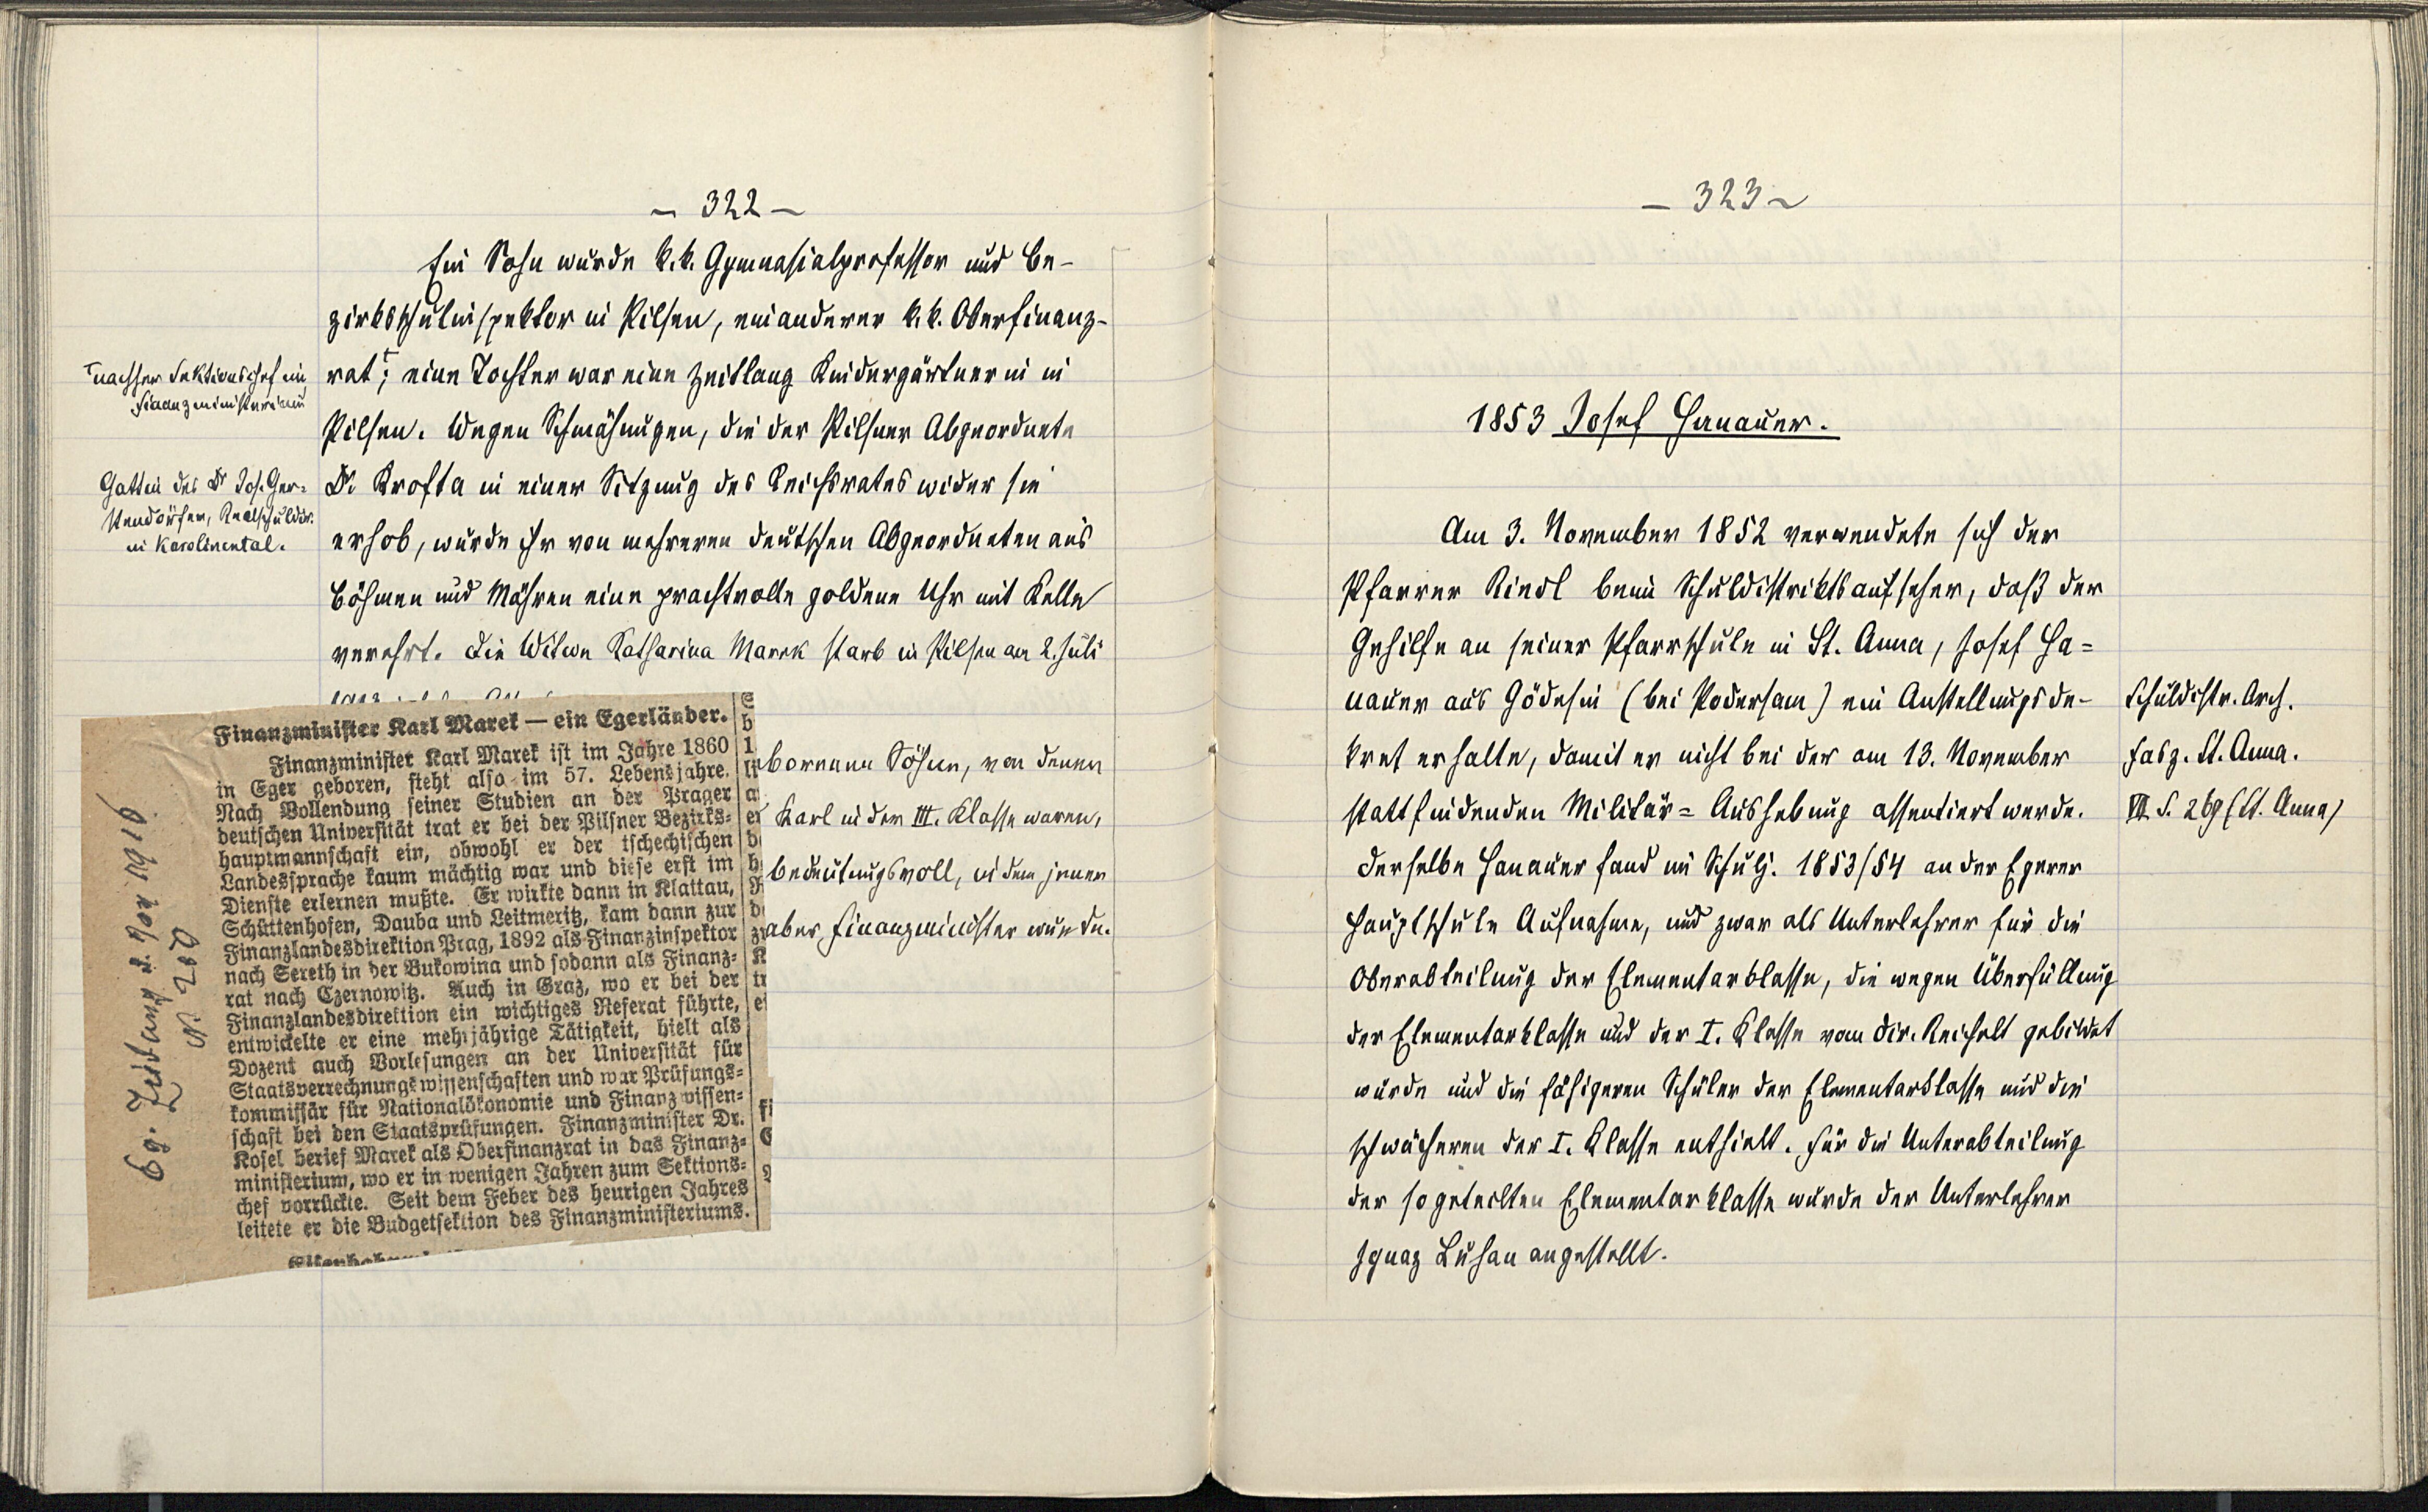 — 322 —
Ein Sohn wurde k.k. Gymnasialprofessor und Be-
zirksschulinspektor in Pilsen, ein anderer k.k. Oberfinanz-
rat; eine Tochter war eine Zeitlang Kindergärtnerin in
Pilsen. Wegen Schmähungen, die der Pilsner Abgeordnete
Dr. Krofta in einer Sitzung des Reichsrates wider sie
erhob, wurde ihr von mehreren deutschen Abgeordneten aus
Böhmen und Mähren eine prachtvolle goldene Uhr mit Kette
verehrt. Die Witwe Katharina Marek starb in Pilsen am 2. Juli
borenen Söhne, von denen
Karl in der III. Klasse waren,
bedeutungsvoll, indem jener
aber Finanzminister wurde.
nachher Sektionschef im
Finanzministerium
Gattin des Dr Jos. Ger-
stendörfer, Realschuldir.
in Karolinental.
Eg. Zeitung 2. Nov 1916
N. 200
Finanzminister Karl Marek — ein Egerländer.
Finanzminister Karl Marek ist im Jahre 1860
in Eger geboren, steht also im 57. Lebensjahre.
Nach Vollendung seiner Studien an der Prager
deutschen Universität trat er bei der Pilsner Bezirks-
hauptmannschaft ein, obwohl er der tschechischen
Landessprache kaum mächtig war und diese erst im
Dienste erlernen mußte. Er wirkte dann in Klattau,
Schüttenhofen, Dauba und Leitmeritz, kam dann zur
Finanzlandesdirektion Prag, 1892 als Finanzinspektor
nach Sereth in der Bukowina und sodann als Finanz-
rat nach Czernowitz. Auch in Graz, wo er bei der
Finanzlandesdirektion ein wichtiges Referat führte,
entwickelte er eine mehrjährige Tätigkeit, hielt als
Dozent auch Vorlesungen an der Universität für
Staatsverrechnungswissenschaften und war Prüfungs-
kommissär für Nationalökonomie und Finanzwissen-
schaft bei den Staatsprüfungen. Finanzminister Dr.
Kosel berief Marek als Oberfinanzrat in das Finanz-
ministerium, wo er in wenigen Jahren zum Sektions-
chef vorrückte. Seit dem Feber des heurigen Jahres
leitete er die Budgetsektion des Finanzministeriums.
— 323 —
1853 Josef Hanauer.
Am 3. November 1852 verwendete sich der
Pfarrer Riedl beim Schuldistriktsaufseher, daß der
Gehilfe an seiner Pfarrschule in St. Anna, Josef Ha-
nauer aus Gödesin (bei Podersam) ein Anstellungsde-
kret erhalte, damit er nicht bei der am 13. November
stattfindenden Militär-Aushebung assentiert werde.
Derselbe Hanauer fand im Schulj. 1853/54 an der Egerer
Hauptschule Aufnahme, und zwar als Unterlehrer für die
Oberabteilung der Elementarklasse, die wegen Überfüllung
der Elementarklasse und der I. Klasse vom Dir. Reichelt gebildet
wurde und die fähigeren Schüler der Elementarklasse und die
schwächeren der I. Klasse enthielt. Für die Unterabteilung
der so geteilten Elementarklasse wurde der Unterlehrer
Ignaz Luhan angestellt.
Schuldistr. Arch.
Fasz. St. Anna.
VII S. 269 (St. Anna)